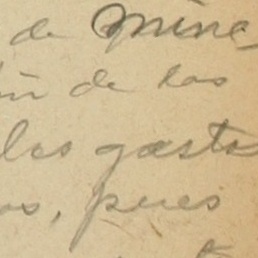 de mine
ón de los
los gasto
os, pues